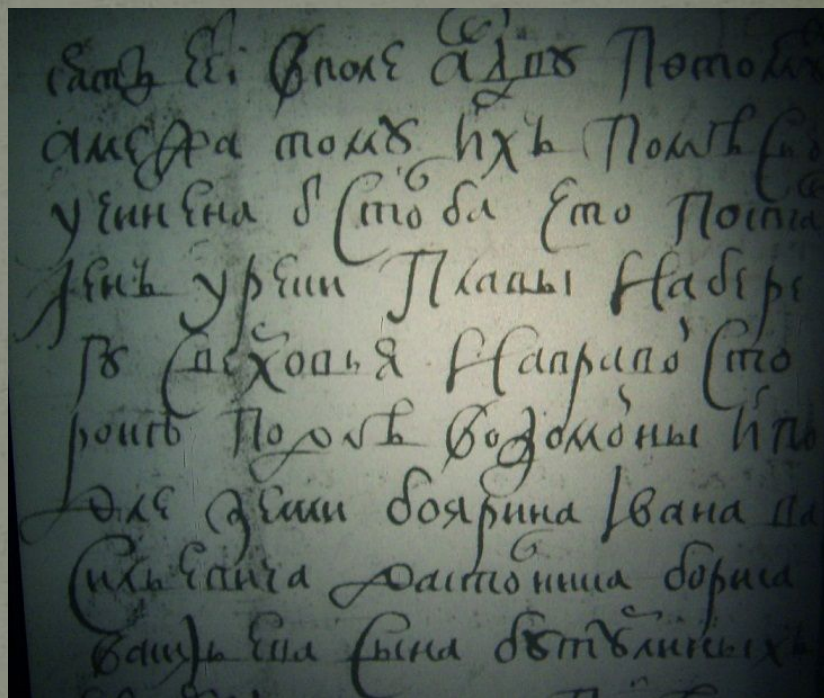 в поле а в дву потому
а межа тому ихъ помѣс
учинена ѿ столба что поста
ленъ у реки Плавы на бере
гу с верховья направо сто
ронѣ подлѣ водомоины и по
дле земли боярина Ивана ва
сильевича да столника бориса
васильева сына бутурлиныхъ